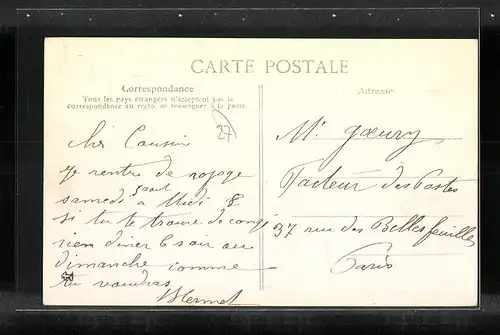 CARTE POSTALE
Correspondance
Tous les pays étrangers n'acceptent pas la
correspondance au recto, se renseigner à la poste.
Adresse
27
Cher Cousin
Je rentre de voyage
5 aout
samedi à Midi
si tu te trouve de congé
vien diner le soir ou
dimanche comme
tu voudras
Mr Goeury
Facteur des Postes
37 rue des Belles feuilles
Paris